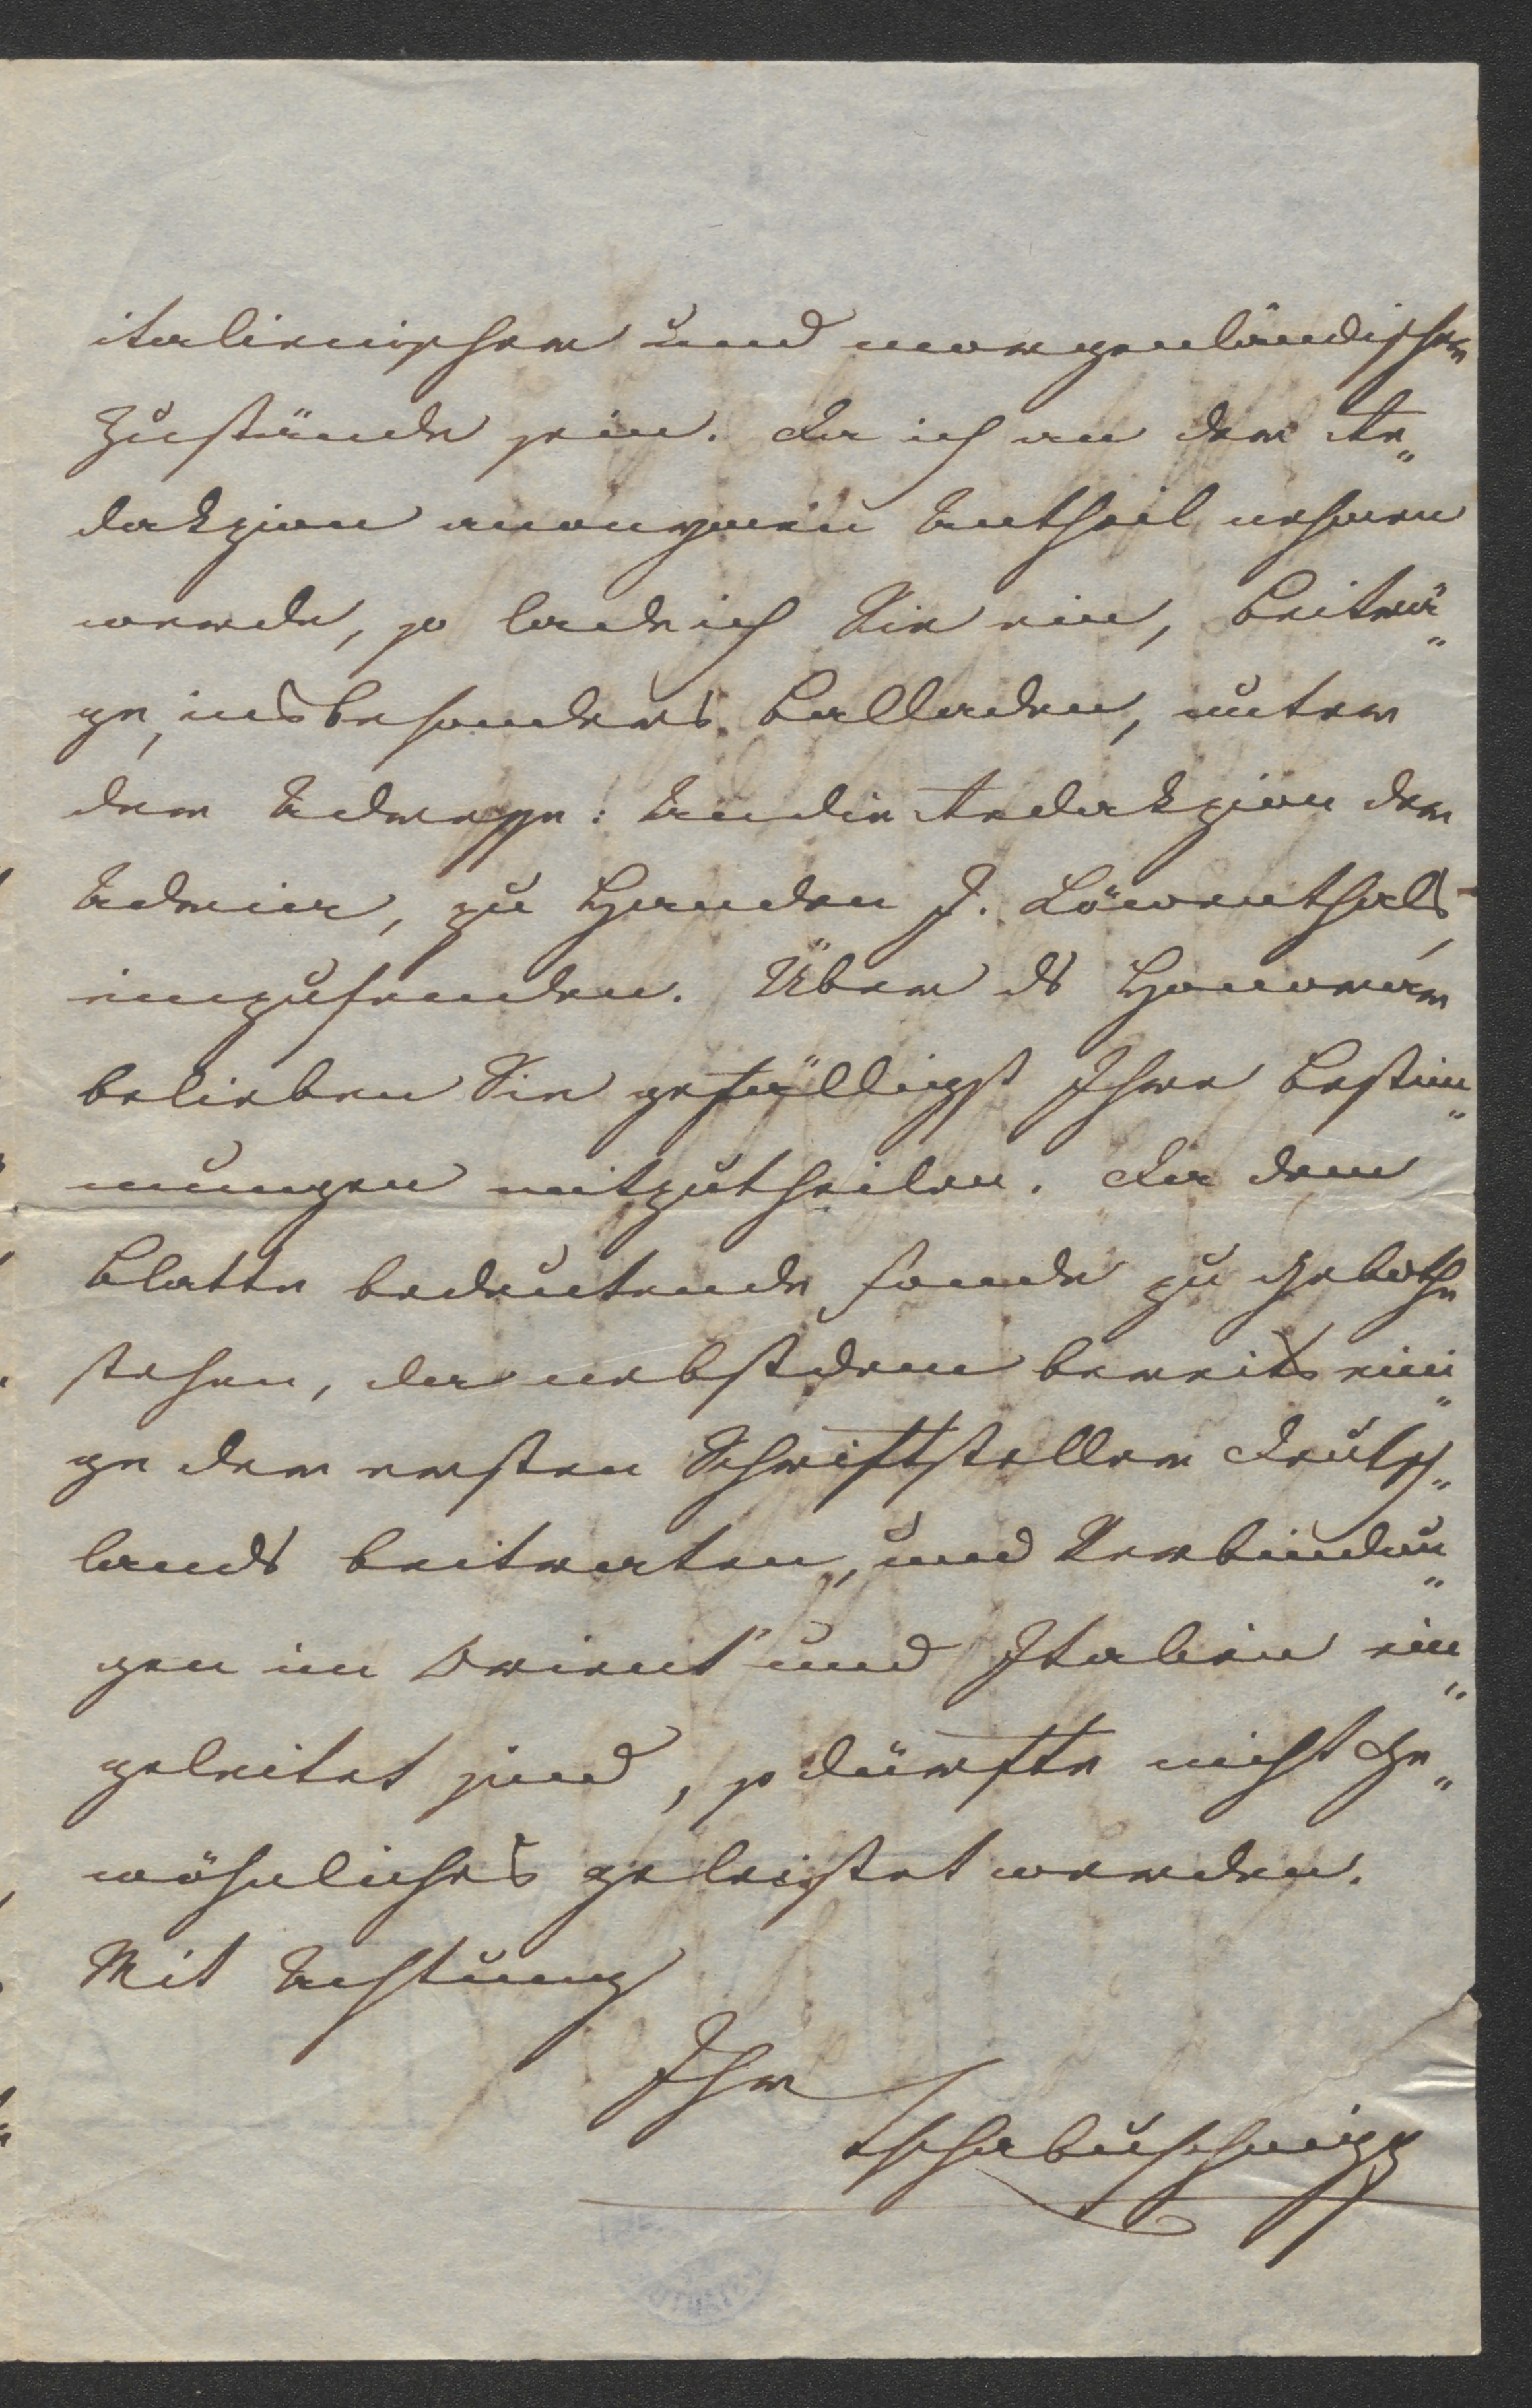 italienischer und morgenländischer
Zustände sein. Da ich an der Re„
dakzion anonymen Antheil nehmen
werde, so lade ich Sie ein, Beiträ„
ge, insbesonders Balladen, unter
der Adresse: An die Redakzion der
Adria, zu Handen J. Löwenthals,
einzusenden. Über ds Honorar
belieben Sie gefälligst Ihre Bestim„
mungen mitzutheilen. Da dem
Blatte bedeutende Fonde zu Gebothe
stehen, da nebstdem bereits eini„
ge der ersten Schriftsteller Deutsch„
lands beitreten, und Verbindun„
gen im Orient und Italien ein„
geleitet sind, so dürfte nicht Ge„
wöhnliches geleistet werden.
Mit Achtung
Ihr
Tschabuschnigg